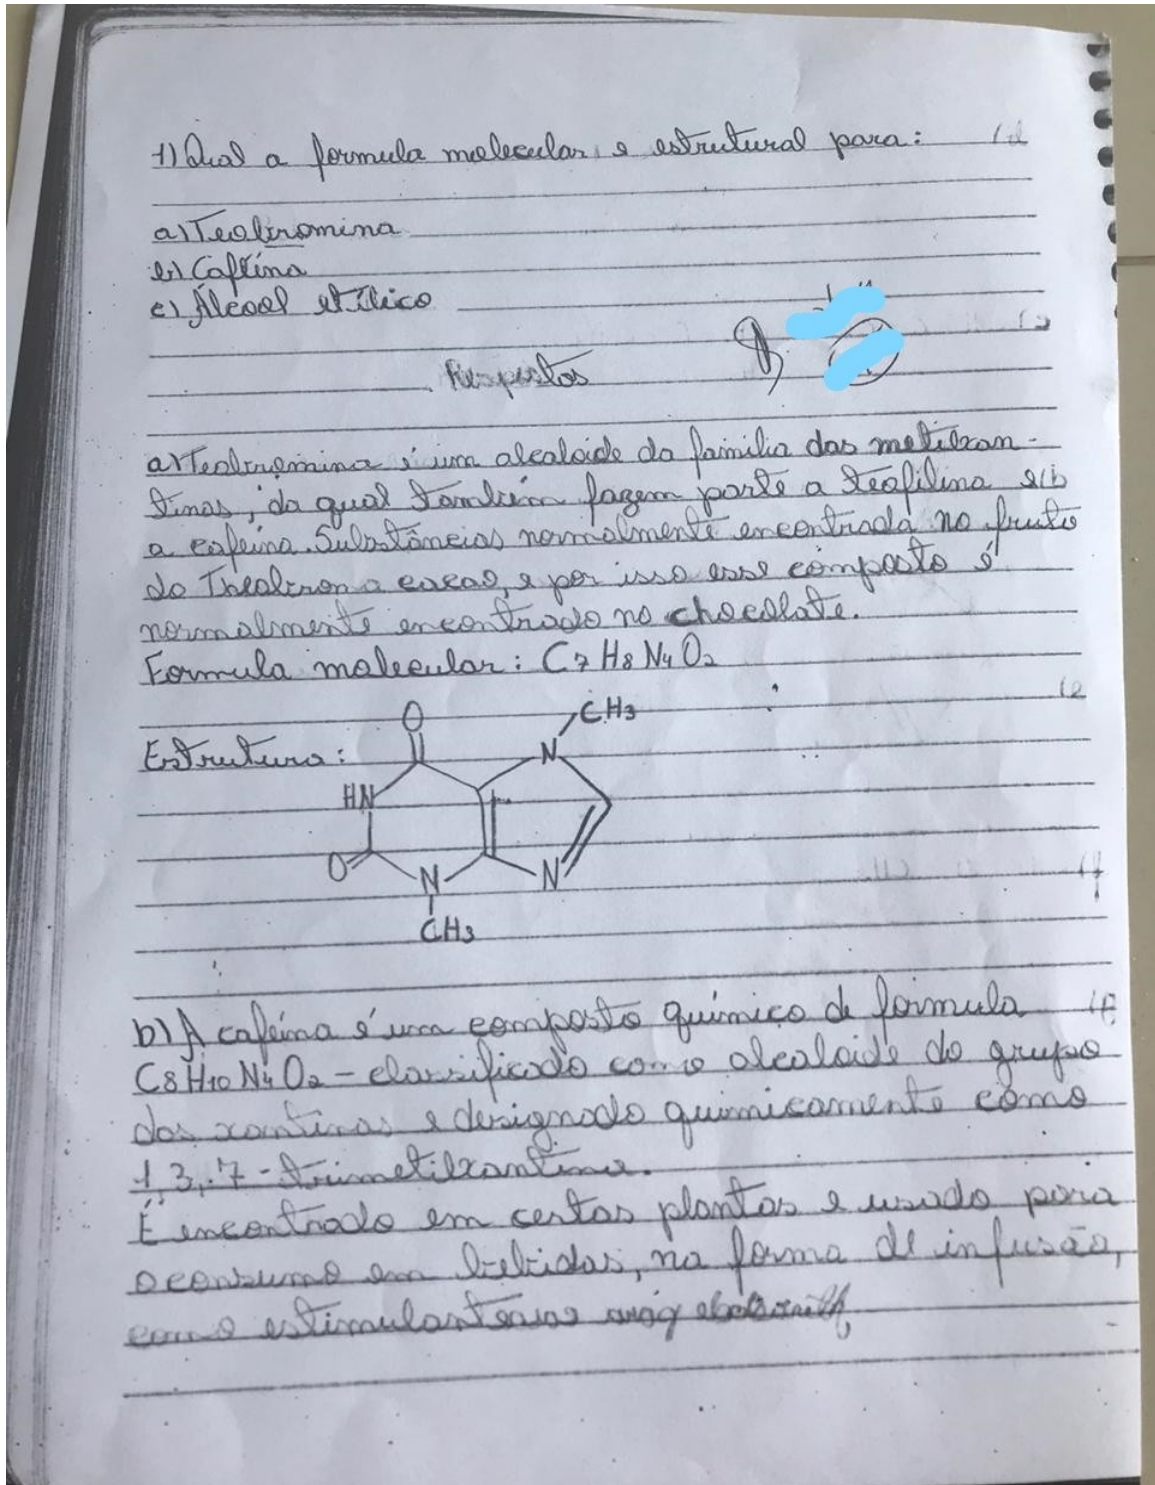 1) Qual a formula molecular, e estrutural para:
a) Teobromina
b) Cafeína
c) Álcool etílico
Respostas
a) Teobromina é um alcaloide da familia das metilxan-
tinas, da qual também fazem parte a teofilina e
a cafeina. Substâncias normalmente encontrada no fruto
do Theobroma cacao, e por isso esse composto é
normalmente encontrado no chocolate.
Formula molecular: C7H8N4O2
Estrutura:
O
CH3
N
HN
O
N
N
CH3
b) A cafeína é um composto químico de formula
C8H10N4O2 - classificado como alcaloide do grupo
das xantinas e designado quimicamente como
1,3,7-trimetilxantina.
É encontrado em certas plantas e usado para
o consumo em bebidas, na forma de infusão,
como estimulante